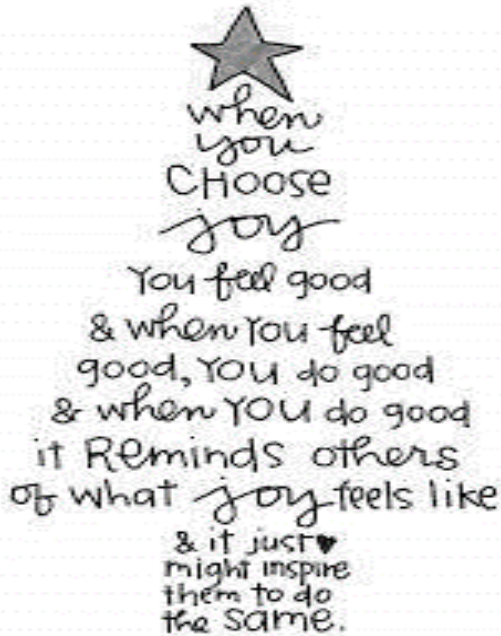 when
you
CHOOSE
joy
You feel good
& when you feel
good, you do good
& when you do good
it Reminds others
of what joy feels like
& it just♥
might inspire
them to do
the same.